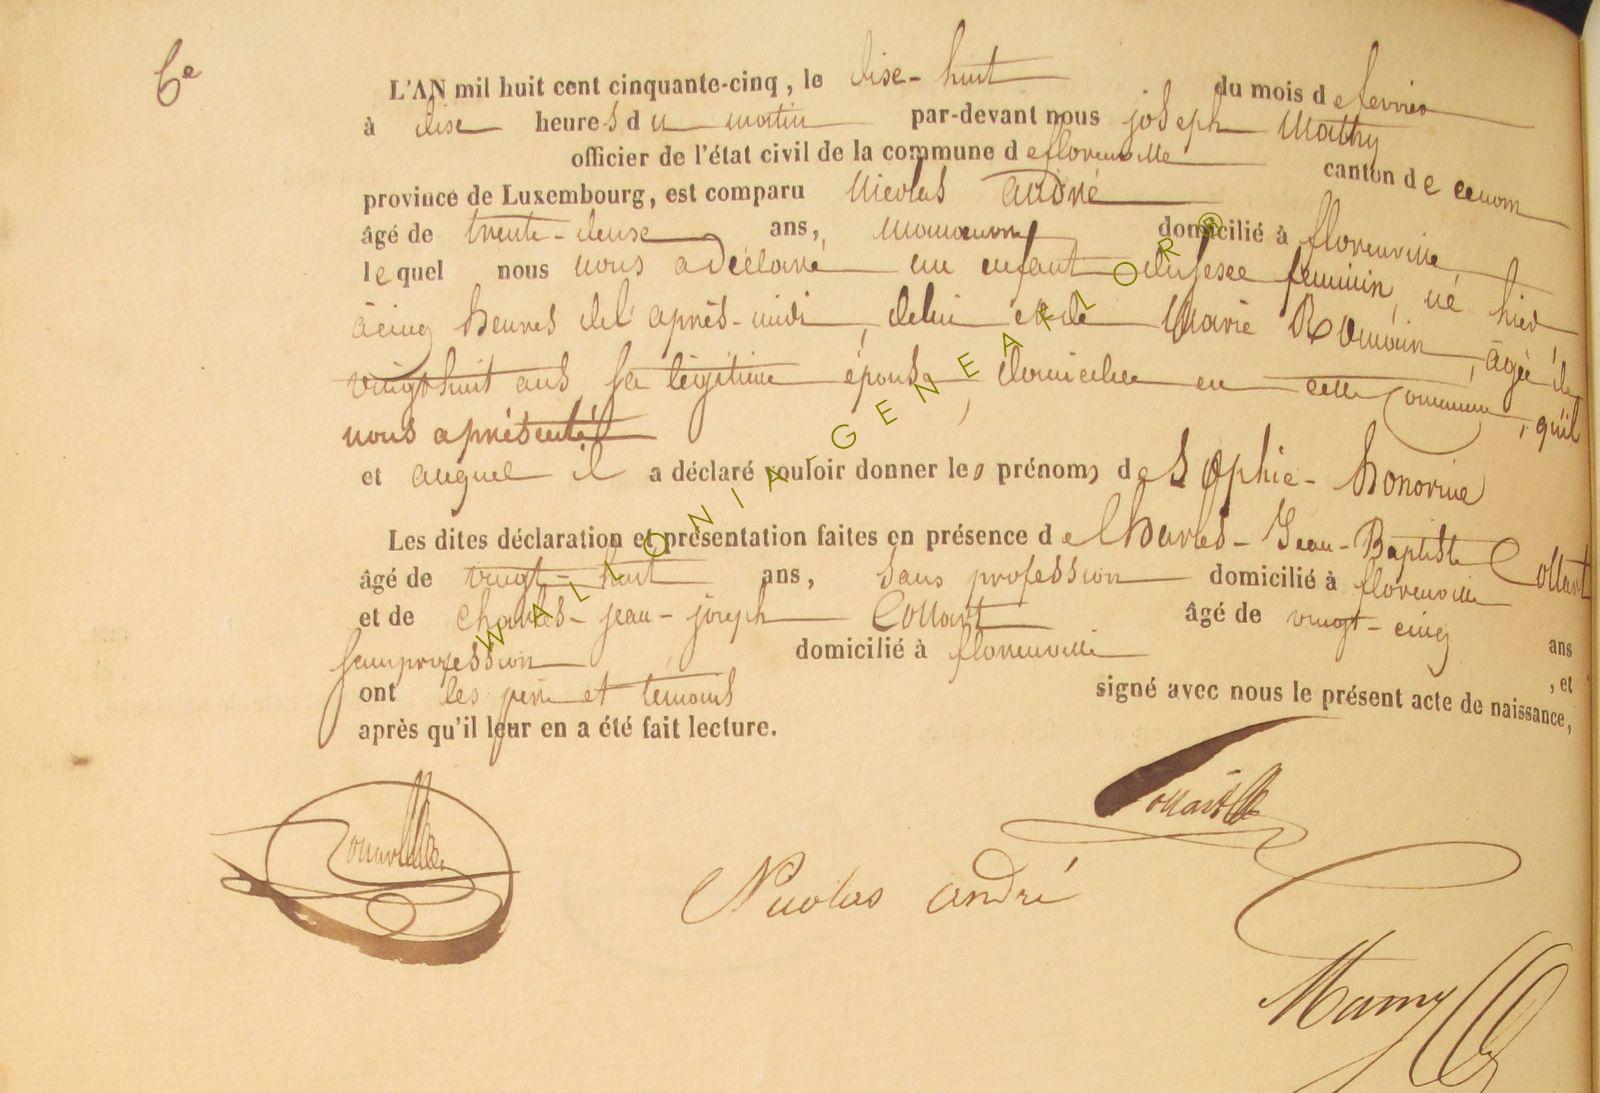 6e
L'AN mil huit cent cinquante-cinq, le dise-huit du mois de fevrier
à dise heures du matin par-devant nous joseph Mathy
officier de l'état civil de la commune de florenville canton de ce nom
province de Luxembourg, est comparu Nicolas André
âgé de trente-deuse ans, manœuvre domicilié à florenville,
lequel nous nous a déclaré un enfant du sexe féminin, né hier
à cinq heures de l'après-midi, de lui et de Marie Romain, âgée de
vingt huit ans sa légitime épouse, domiciliée en cette Commune, qu'il
nous a présenté
et auquel il a déclaré vouloir donner les prénoms de Sophie-honorine
Les dites déclaration et présentation faites en présence de Charles-Jean-Baptiste Collart
âgé de vingt-huit ans, sans profession domicilié à florenville
et de Charles-jean-joseph Collart âgé de vingt-cinq ans
sans profession domicilié à florenville, et
ont les père et témoins signé avec nous le présent acte de naissance,
après qu'il leur en a été fait lecture.
Collart
Nicolas andré
WALLONIA-GENEALOR®